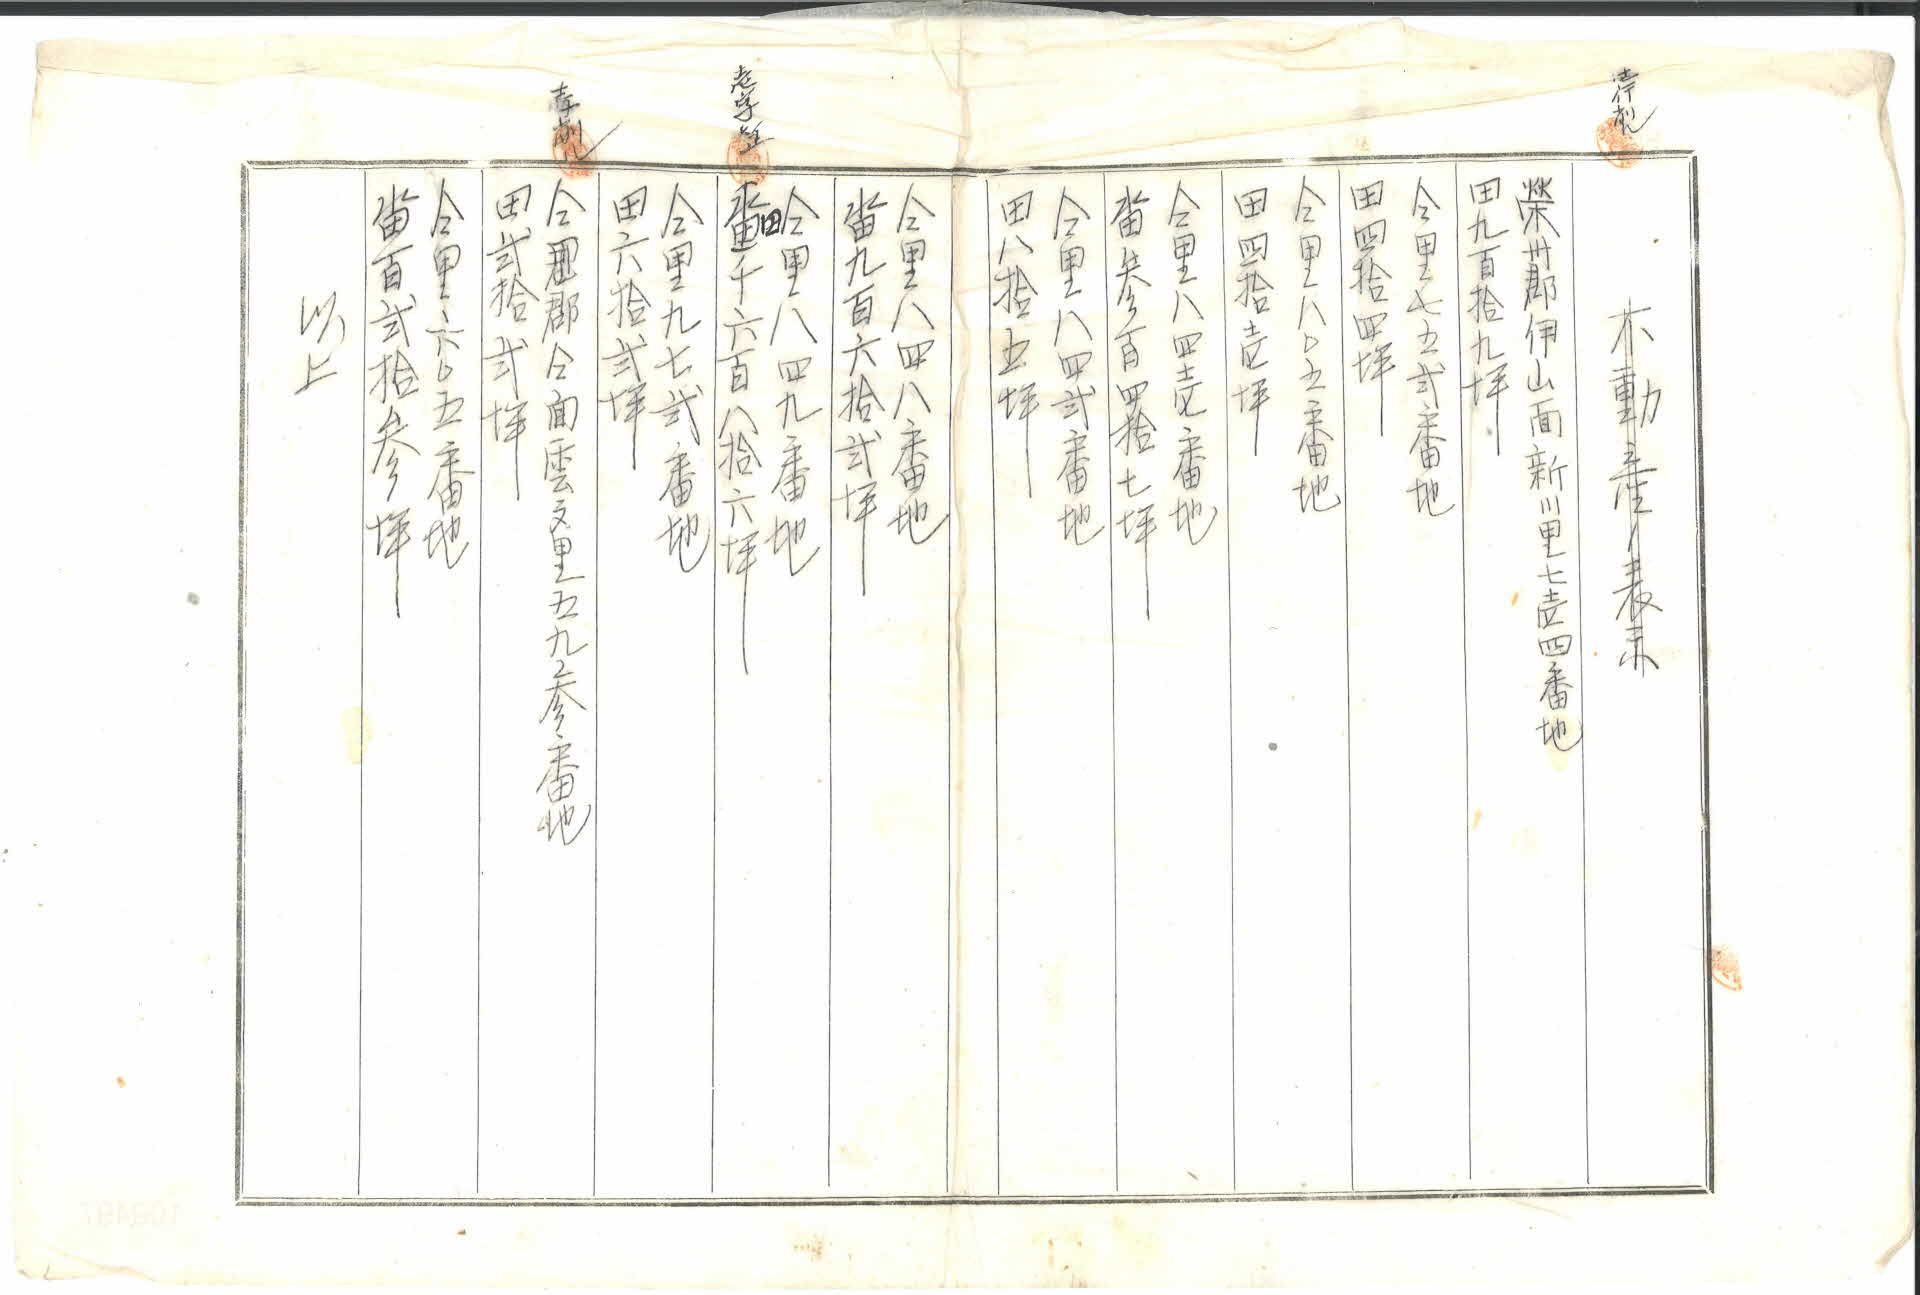 壱行削
不動産表示
榮州郡伊山面新川里七壱四番地
田九百拾九坪
仝里七五弐番地
田四拾四坪
仝里八〇五番地
田四拾壱坪
仝里八四壱番地
畓参百四拾七坪
仝里八四弐番地
田八拾五坪
仝里八四八番地
畓九百六拾弐坪
壱字訂正
仝里八四九番地
田
千六百八拾六坪
仝里九七弐番地
田六拾弐坪
壱字削
仝郡仝面雲文里五九参番地
田弐拾弐坪
仝里六〇五番地
畓百弐拾参坪
以上